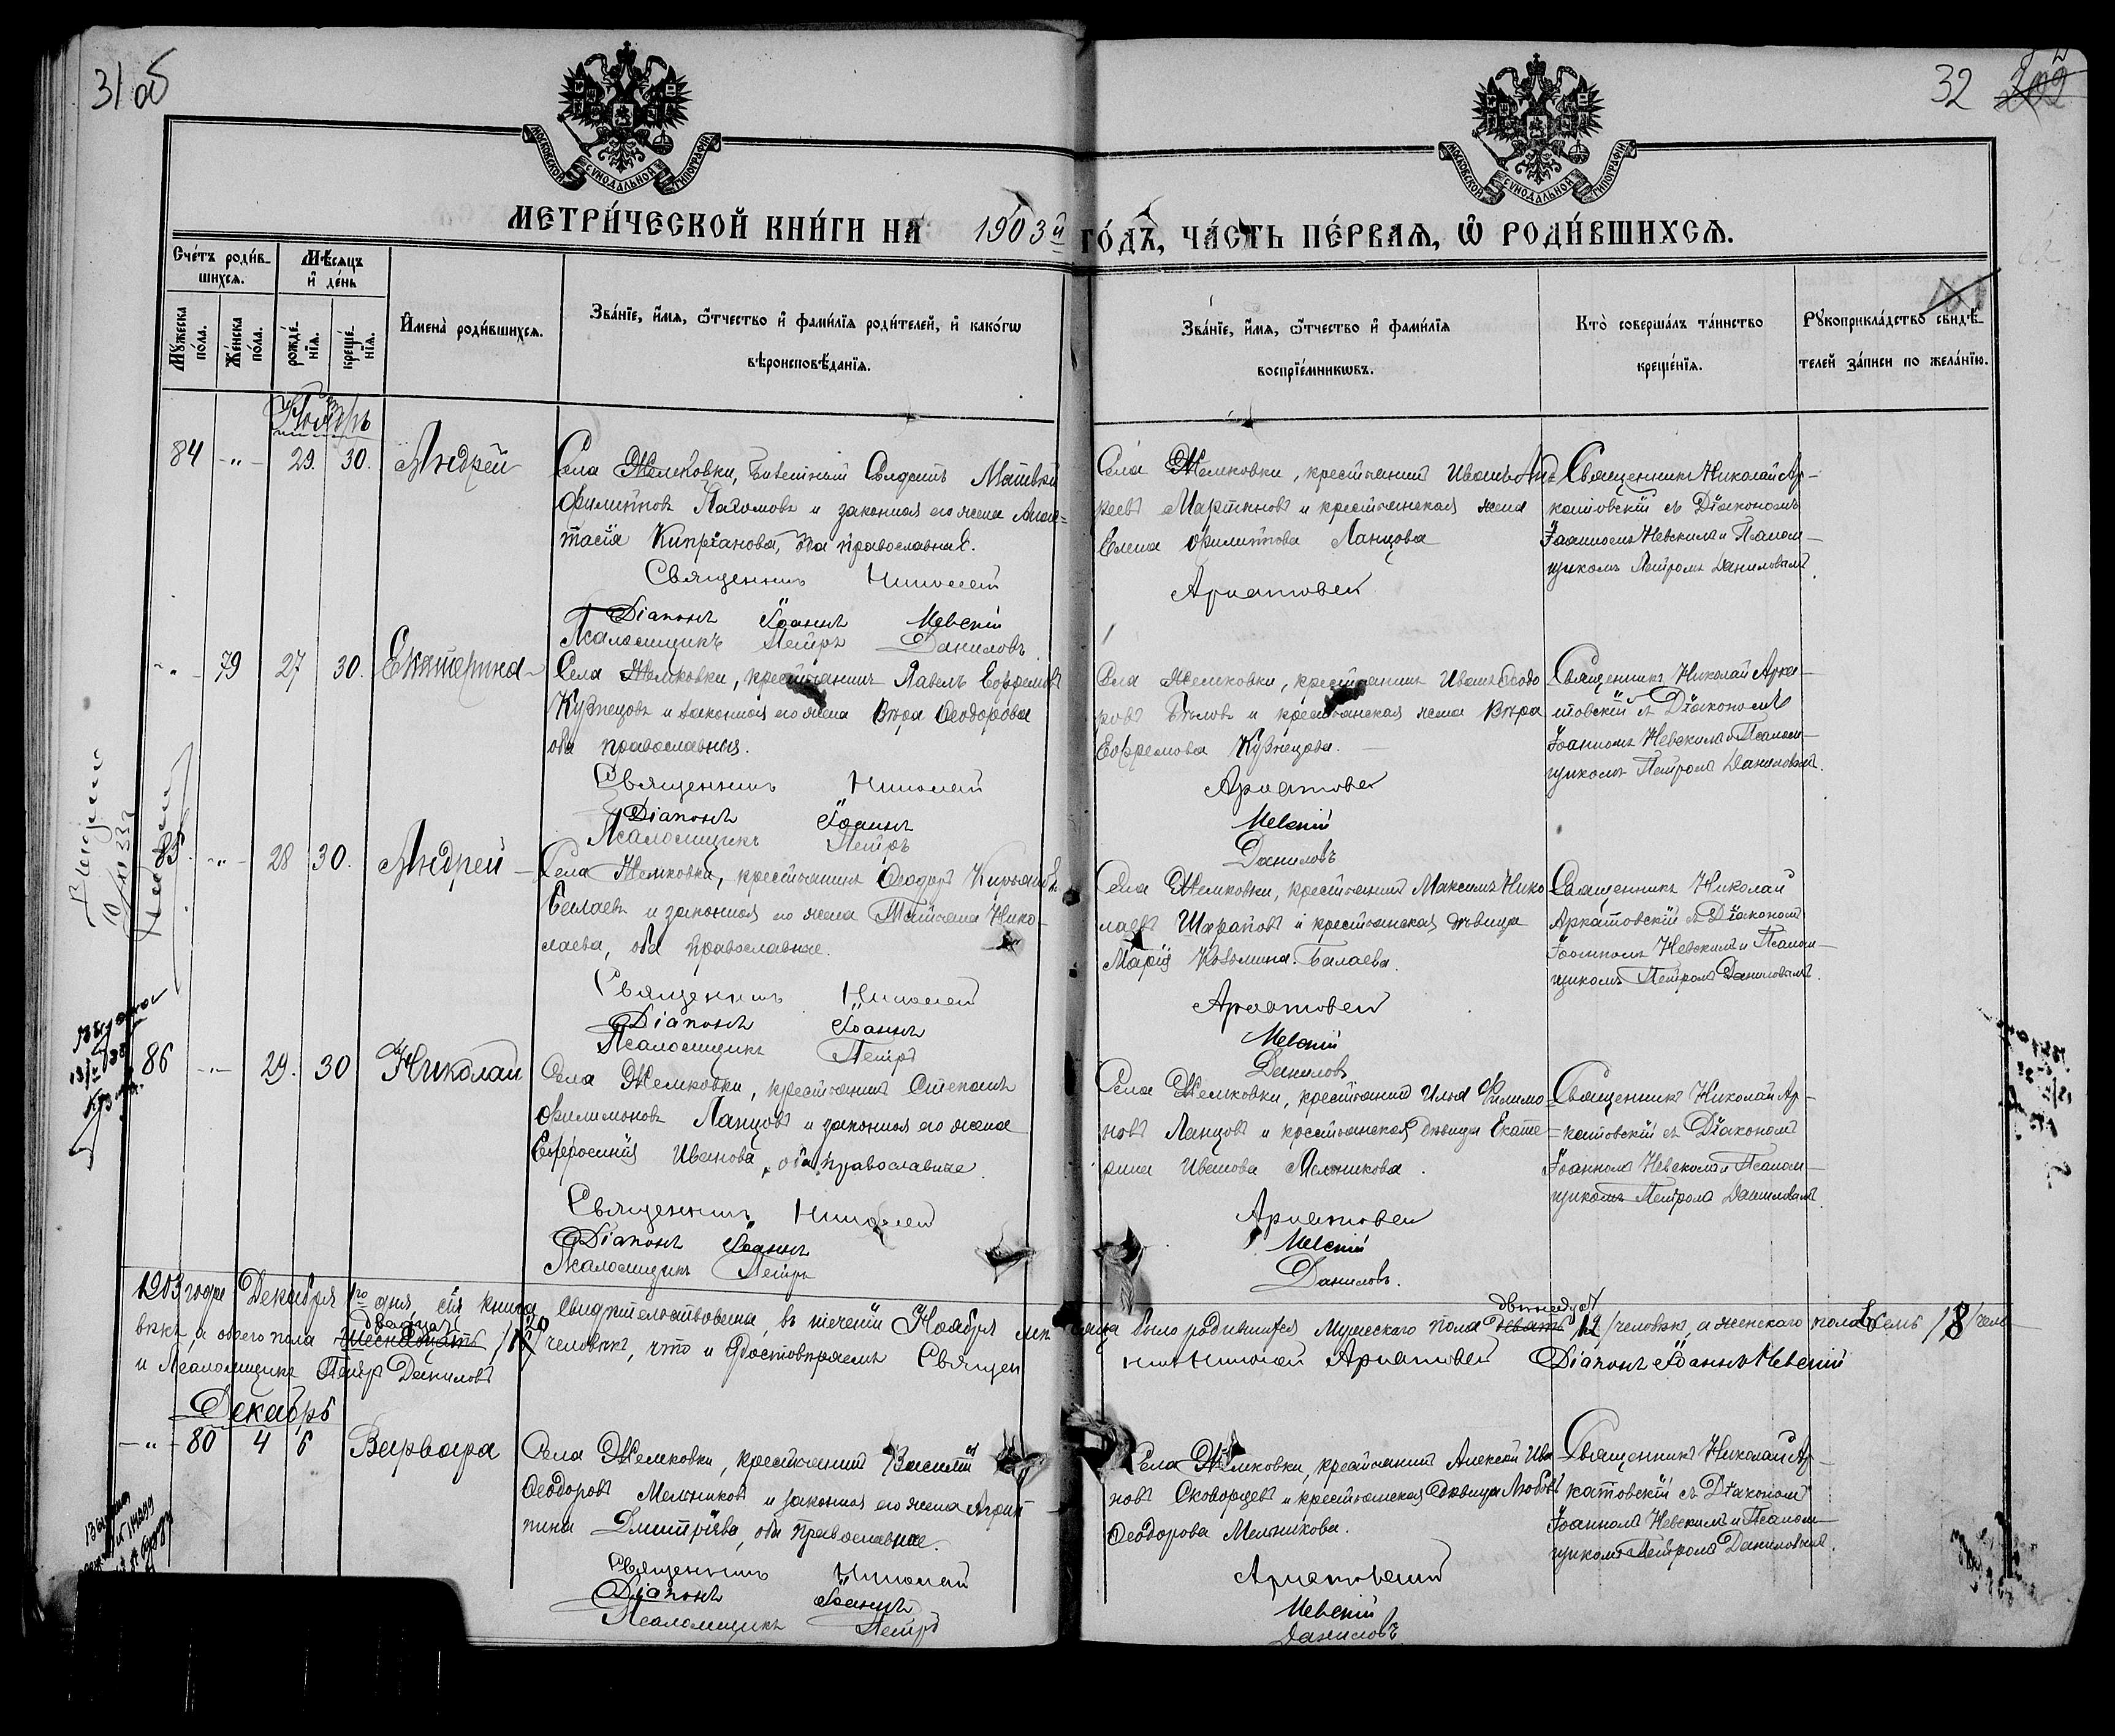 31 об
32
МОСКОВСКОЙ СѴНОДАЛЬНОЙ ТИПОГРАФІИ
МОСКОВСКОЙ СѴНОДАЛЬНОЙ ТИПОГРАФІИ
МЕТРИ́ЧЕСКОЙ КНИ́ГИ НА 1903й ГО́ДЪ, ЧА́СТЬ ПЕ́РВАѦ, Ѡ РОДИ́ВШИХСѦ.
Сче́тъ роди́в-
шихсѧ.
Мѣ́сѧцъ
и де́нь
Мꙋ́жеска по́ла.
Же́нска по́ла.
рожде́нїѧ.
креще́нїѧ.
Имена̀ роди́вшихсѧ.
Зва́нїе, и҆́мѧ, ѻ҆́тчество и҆ фами́лїѧ роди́телей, и҆ како́гѡ
вѣроисповѣ́данїѧ.
Зва́нїе, и҆́мѧ, ѻ҆́тчество и҆ фами́лїѧ
воспрїе́мникѡвъ.
Кто̀ соверша́лъ та́инство
креще́нїѧ.
Рꙋкоприкла́дство свидѣ́-
телей за́писи по жела́нїю.
Ноябрь
84 -"- 29. 30. Андрей
Села Жемковки, билетный Солдатъ Матвѣй
Филиповъ Пахомовъ и законная его жена Анас=
тасія Кипріанова, оба православные.
Священникъ Николай
Діаконъ Іоаннъ Невскій
Псаломщикъ Петръ Даниловъ
Села Жемковки, крестьянинъ Иванъ Анд=
реевъ Мартыновъ и крестьянская жена
Елена Филиппова Ланцова
Аркатовскій
Священникъ Николай Ар-
катовскій съ Діакономъ
Іоанномъ Невскимъ и Псалом-
щикомъ Петромъ Даниловымъ.
-"- 79 27 30. Екатерина
Села Жемковки, крестьянинъ Павелъ Ефремовъ
Кузнецовъ и законная его жена Вѣра Ѳеодорова
оба православныя.
Священникъ Николай
Діаконъ Іоаннъ
Псаломщикъ Петръ
Села Жемковки, крестьянинъ Иванъ Ѳеодо
ровъ Бѣловъ и крестьянская жена Вѣра
Ефремова Кузнецова.
Аркатовскій
Невскій
Даниловъ
Священникъ Николай Арка-
товскій съ Діакономъ
Іоанномъ Невскимъ и Псалом-
щикомъ Петромъ Даниловымъ.
85. -"- 28 30. Андрей
Села Жемковки, крестьянинъ Ѳеодоръ Кирьановъ
Балаевъ и законная его жена Татьяна Нико-
лаева, оба православные.
Священникъ Николай
Діаконъ Іоаннъ
Псаломщикъ Петръ
Села Жемковки, крестьянинъ Максимъ Нико
лаевъ Шараповъ и крестьянская дѣвица
Марія Козьмина Балаева.
Аркатовскій
Невскій
Даниловъ
Священникъ Николай
Аркатовскій съ Діакономъ
Іоанномъ Невскимъ и Псалом-
щикомъ Петромъ Даниловымъ.
86 -"- 29. 30 Николай
Села Жемковки, крестьянинъ Степанъ
Филимоновъ Ланцовъ и законная его жена
Евфросинія Иванова, оба православные
Священникъ Николай
Діаконъ Іоаннъ
Псаломщикъ Петръ
Села Жемковки, крестьянинъ Илья Филимо-
новъ Ланцовъ и крестьянская дѣвица Екате-
рина Иванова Мельникова.
Аркатовскій
Невскій
Даниловъ.
Священникъ Николай Ар-
катовскій съ Діакономъ
Іоанномъ Невскимъ и Псалом-
щикомъ Петромъ Даниловымъ.
1903 года Декабря 1го дня, сія книга свидѣтельствована, въ теченіи Ноября мѣсяца было родившихся мужескаго пола двенадцать /12/ человѣкъ, а женскаго пола восемь /8/ чело-
вѣкъ, а обоего пола двадцать /20/ человѣкъ, что и удостовѣряемъ Священникъ Николай Аркатовскій Діаконъ Іоаннъ Невскій
и Псаломщикъ Петръ Даниловъ
Декабрь
-"- 80 4 6 Варвара
Села Жемковки, крестьянинъ Василій
Ѳеодоровъ Мельниковъ и законная его жена Агрип
пина Дмитріева, оба православные.
Священникъ Николай
Діаконъ Іоаннъ
Псаломщикъ Петръ
Села Жемковки, крестьянинъ Алексѣй Ива
новъ Скворцовъ и крестьянская дѣвица Любовь
Ѳеодорова Мельникова.
Аркатовскій
Невскій
Даниловъ
Священникъ Николай Ар-
катовскій съ Діакономъ
Іоанномъ Невскимъ и Псалом-
щикомъ Петромъ Даниловымъ.